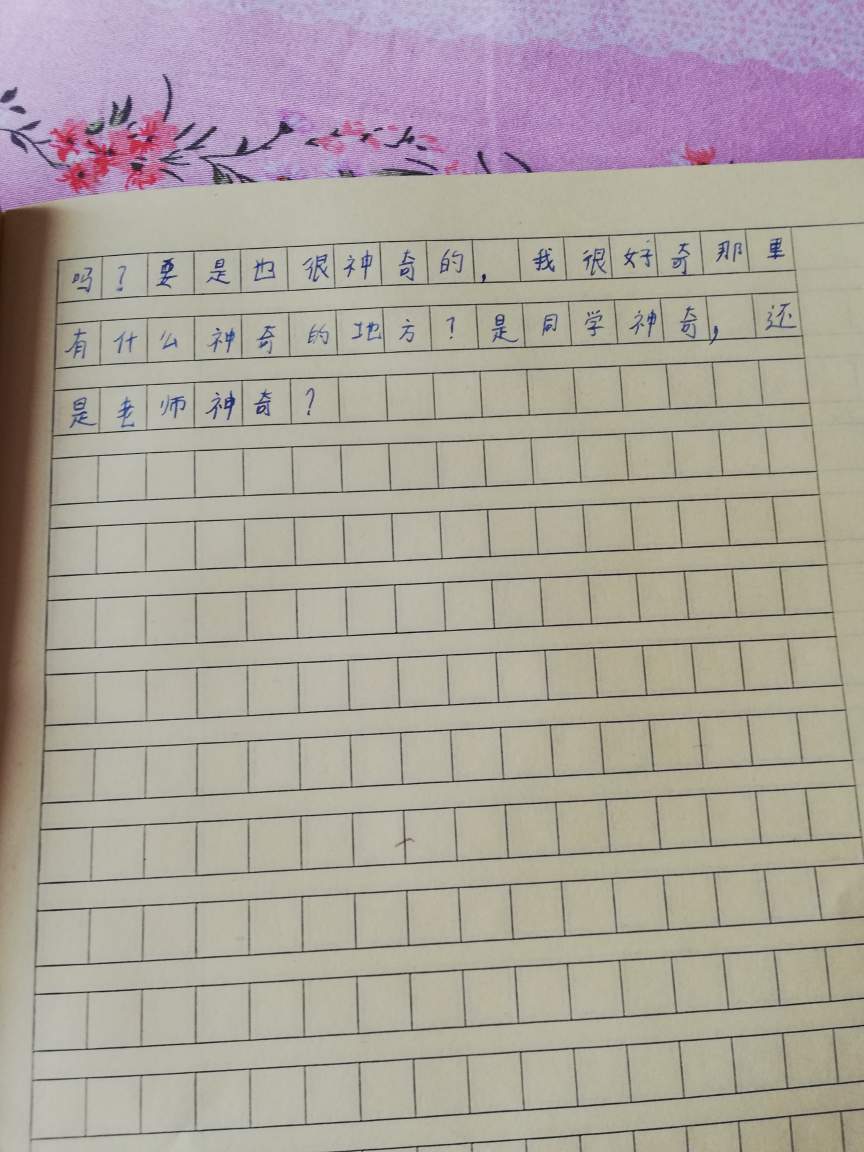 吗?要是也很神奇的,我很好奇那里
有什么神奇的地方?是同学神奇,还
是老师神奇?